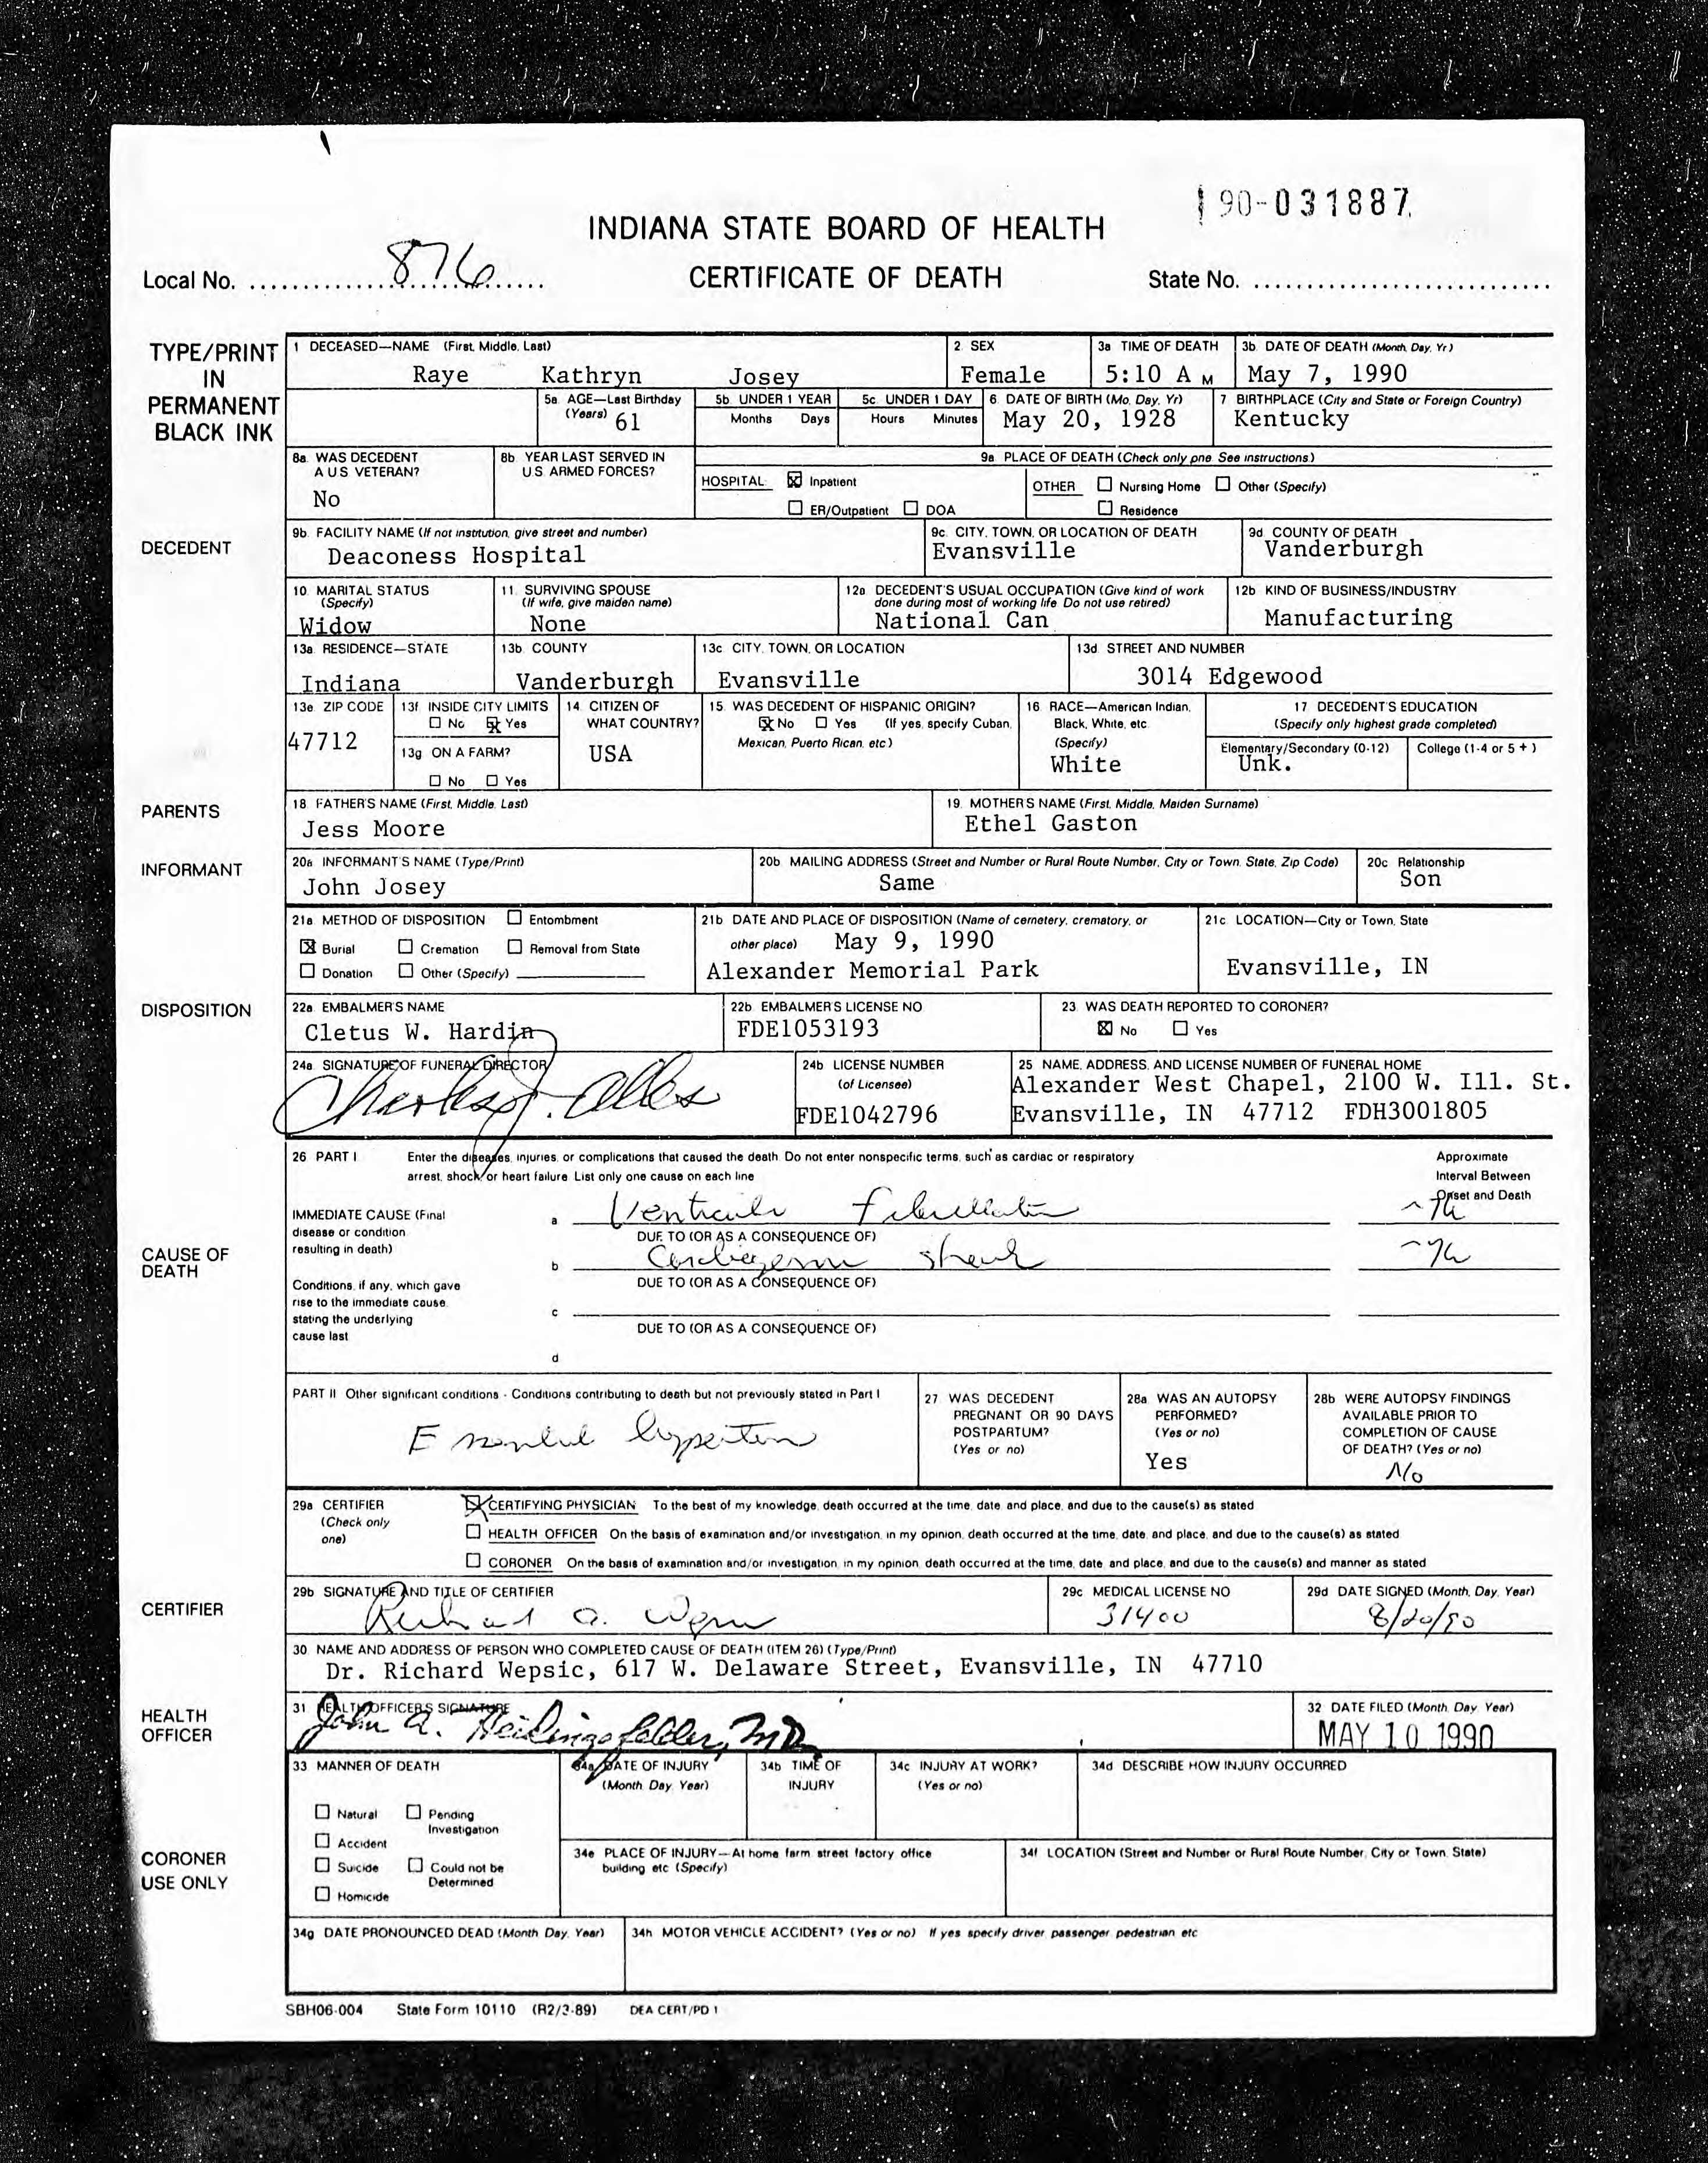 90-031887
INDIANA STATE BOARD OF HEALTH
Local No. 876 CERTIFICATE OF DEATH State No.
TYPE/PRINT IN PERMANENT BLACK INK
1 DECEASED—NAME (First, Middle, Last) 2. SEX 3a TIME OF DEATH 3b. DATE OF DEATH (Month, Day, Yr.)
Raye Kathryn Josey Female 5:10 A M May 7, 1990
5a. AGE—Last Birthday (Years) 61 5b. UNDER 1 YEAR Months Days 5c. UNDER 1 DAY Hours Minutes 6 DATE OF BIRTH (Mo, Day, Yr) May 20, 1928 7 BIRTHPLACE (City and State or Foreign Country) Kentucky
8a. WAS DECEDENT A U S VETERAN? No 8b YEAR LAST SERVED IN U.S. ARMED FORCES?
9a PLACE OF DEATH (Check only one. See instructions.)
HOSPITAL: Inpatient OTHER Nursing Home Other (Specify)
ER/Outpatient DOA Residence
DECEDENT
9b. FACILITY NAME (If not institution, give street and number) 9c. CITY, TOWN, OR LOCATION OF DEATH 9d. COUNTY OF DEATH
Deaconess Hospital Evansville Vanderburgh
10. MARITAL STATUS (Specify) 11. SURVIVING SPOUSE (If wife, give maiden name) 12a DECEDENT'S USUAL OCCUPATION (Give kind of work done during most of working life Do not use retired) 12b KIND OF BUSINESS/INDUSTRY
Widow None National Can Manufacturing
13a. RESIDENCE—STATE 13b. COUNTY 13c. CITY, TOWN, OR LOCATION 13d. STREET AND NUMBER
Indiana Vanderburgh Evansville 3014 Edgewood
13e. ZIP CODE 47712 13f. INSIDE CITY LIMITS No Yes
13g. ON A FARM? No Yes
14. CITIZEN OF WHAT COUNTRY? USA
15. WAS DECEDENT OF HISPANIC ORIGIN? No Yes (If yes, specify Cuban, Mexican, Puerto Rican, etc.)
16. RACE—American Indian, Black, White, etc. (Specify) White
17. DECEDENT'S EDUCATION (Specify only highest grade completed)
Elementary/Secondary (0-12) Unk. College (1-4 or 5 +)
PARENTS
18. FATHER'S NAME (First, Middle, Last) 19. MOTHER'S NAME (First, Middle, Maiden Surname)
Jess Moore Ethel Gaston
INFORMANT
20a INFORMANT'S NAME (Type/Print) 20b. MAILING ADDRESS (Street and Number or Rural Route Number, City or Town, State, Zip Code) 20c Relationship
John Josey Same Son
21a METHOD OF DISPOSITION Entombment
Burial Cremation Removal from State
Donation Other (Specify)
21b DATE AND PLACE OF DISPOSITION (Name of cemetery, crematory, or other place) May 9, 1990
Alexander Memorial Park
21c. LOCATION—City or Town, State
Evansville, IN
DISPOSITION
22a EMBALMER'S NAME 22b EMBALMER'S LICENSE NO 23 WAS DEATH REPORTED TO CORONER?
Cletus W. Hardin FDE1053193 No Yes
24a. SIGNATURE OF FUNERAL DIRECTOR 24b LICENSE NUMBER (of Licensee) 25 NAME, ADDRESS, AND LICENSE NUMBER OF FUNERAL HOME
Charles J. Alles FDE1042796 Alexander West Chapel, 2100 W. Ill. St.
Evansville, IN 47712 FDH3001805
CAUSE OF DEATH
26 PART I Enter the diseases, injuries, or complications that caused the death. Do not enter nonspecific terms, such as cardiac or respiratory
arrest, shock, or heart failure. List only one cause on each line
Approximate Interval Between Onset and Death
IMMEDIATE CAUSE (Final disease or condition resulting in death)
a Ventricular fibrillation
DUE TO (OR AS A CONSEQUENCE OF)
b Cardiogenic shock
DUE TO (OR AS A CONSEQUENCE OF)
Conditions, if any, which gave rise to the immediate cause, stating the underlying cause last
c
DUE TO (OR AS A CONSEQUENCE OF)
d
PART II Other significant conditions - Conditions contributing to death but not previously stated in Part I
Essential hypertension
27 WAS DECEDENT PREGNANT OR 90 DAYS POSTPARTUM? (Yes or no)
28a WAS AN AUTOPSY PERFORMED? (Yes or no) Yes
28b WERE AUTOPSY FINDINGS AVAILABLE PRIOR TO COMPLETION OF CAUSE OF DEATH? (Yes or no) No
29a CERTIFIER (Check only one)
CERTIFYING PHYSICIAN To the best of my knowledge, death occurred at the time, date, and place, and due to the cause(s) as stated
HEALTH OFFICER On the basis of examination and/or investigation, in my opinion, death occurred at the time, date, and place, and due to the cause(s) as stated
CORONER On the basis of examination and/or investigation, in my opinion, death occurred at the time, date, and place, and due to the cause(s) and manner as stated
CERTIFIER
29b SIGNATURE AND TITLE OF CERTIFIER 29c MEDICAL LICENSE NO 29d DATE SIGNED (Month, Day, Year)
Richard A. 31400 8/20/90
30. NAME AND ADDRESS OF PERSON WHO COMPLETED CAUSE OF DEATH (ITEM 26) (Type/Print)
Dr. Richard Wepsic, 617 W. Delaware Street, Evansville, IN 47710
HEALTH OFFICER
31. HEALTH OFFICER'S SIGNATURE 32 DATE FILED (Month, Day, Year)
John A. Heidingsfelder, MD MAY 10 1990
33 MANNER OF DEATH
Natural Pending Investigation
Accident
Suicide Could not be Determined
Homicide
34a DATE OF INJURY (Month, Day, Year) 34b TIME OF INJURY 34c INJURY AT WORK? (Yes or no) 34d DESCRIBE HOW INJURY OCCURRED
34e PLACE OF INJURY—At home, farm, street, factory, office building, etc. (Specify) 34f LOCATION (Street and Number or Rural Route Number, City or Town, State)
CORONER USE ONLY
34g DATE PRONOUNCED DEAD (Month, Day, Year) 34h MOTOR VEHICLE ACCIDENT? (Yes or no) If yes specify driver, passenger, pedestrian, etc
SBH06-004 State Form 10110 (R2/3-89) DEA CERT/PD 1